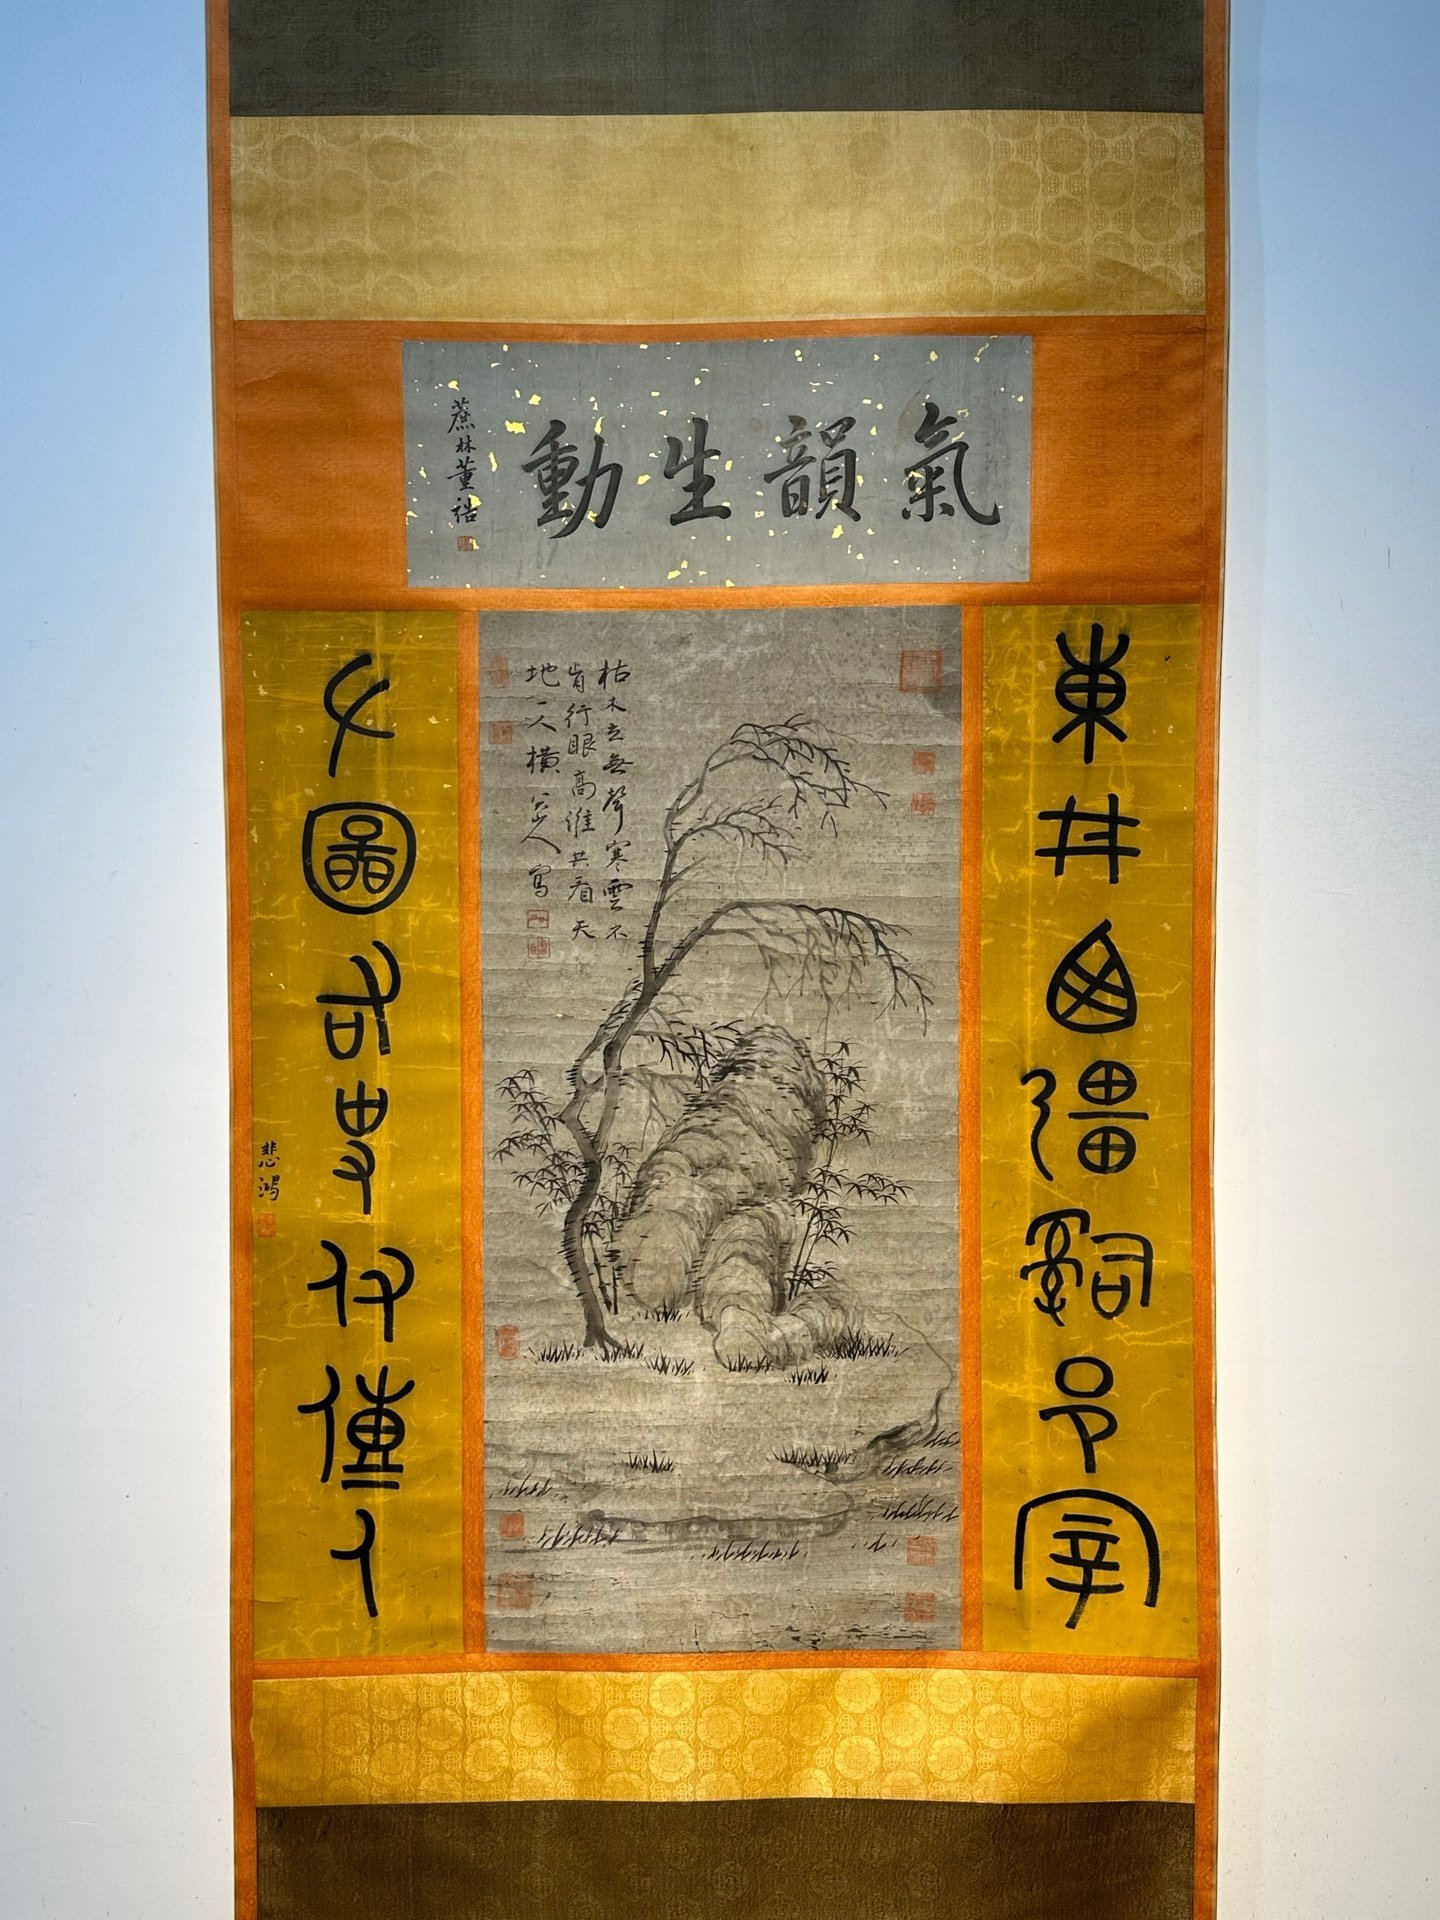 氣韻生動
蔗林董誥
東井西疆邑宰
枯木立無聲寒雲不
肯行眼高誰共看天
地一人橫 八大山人 寫
圖右史傳人
悲鴻